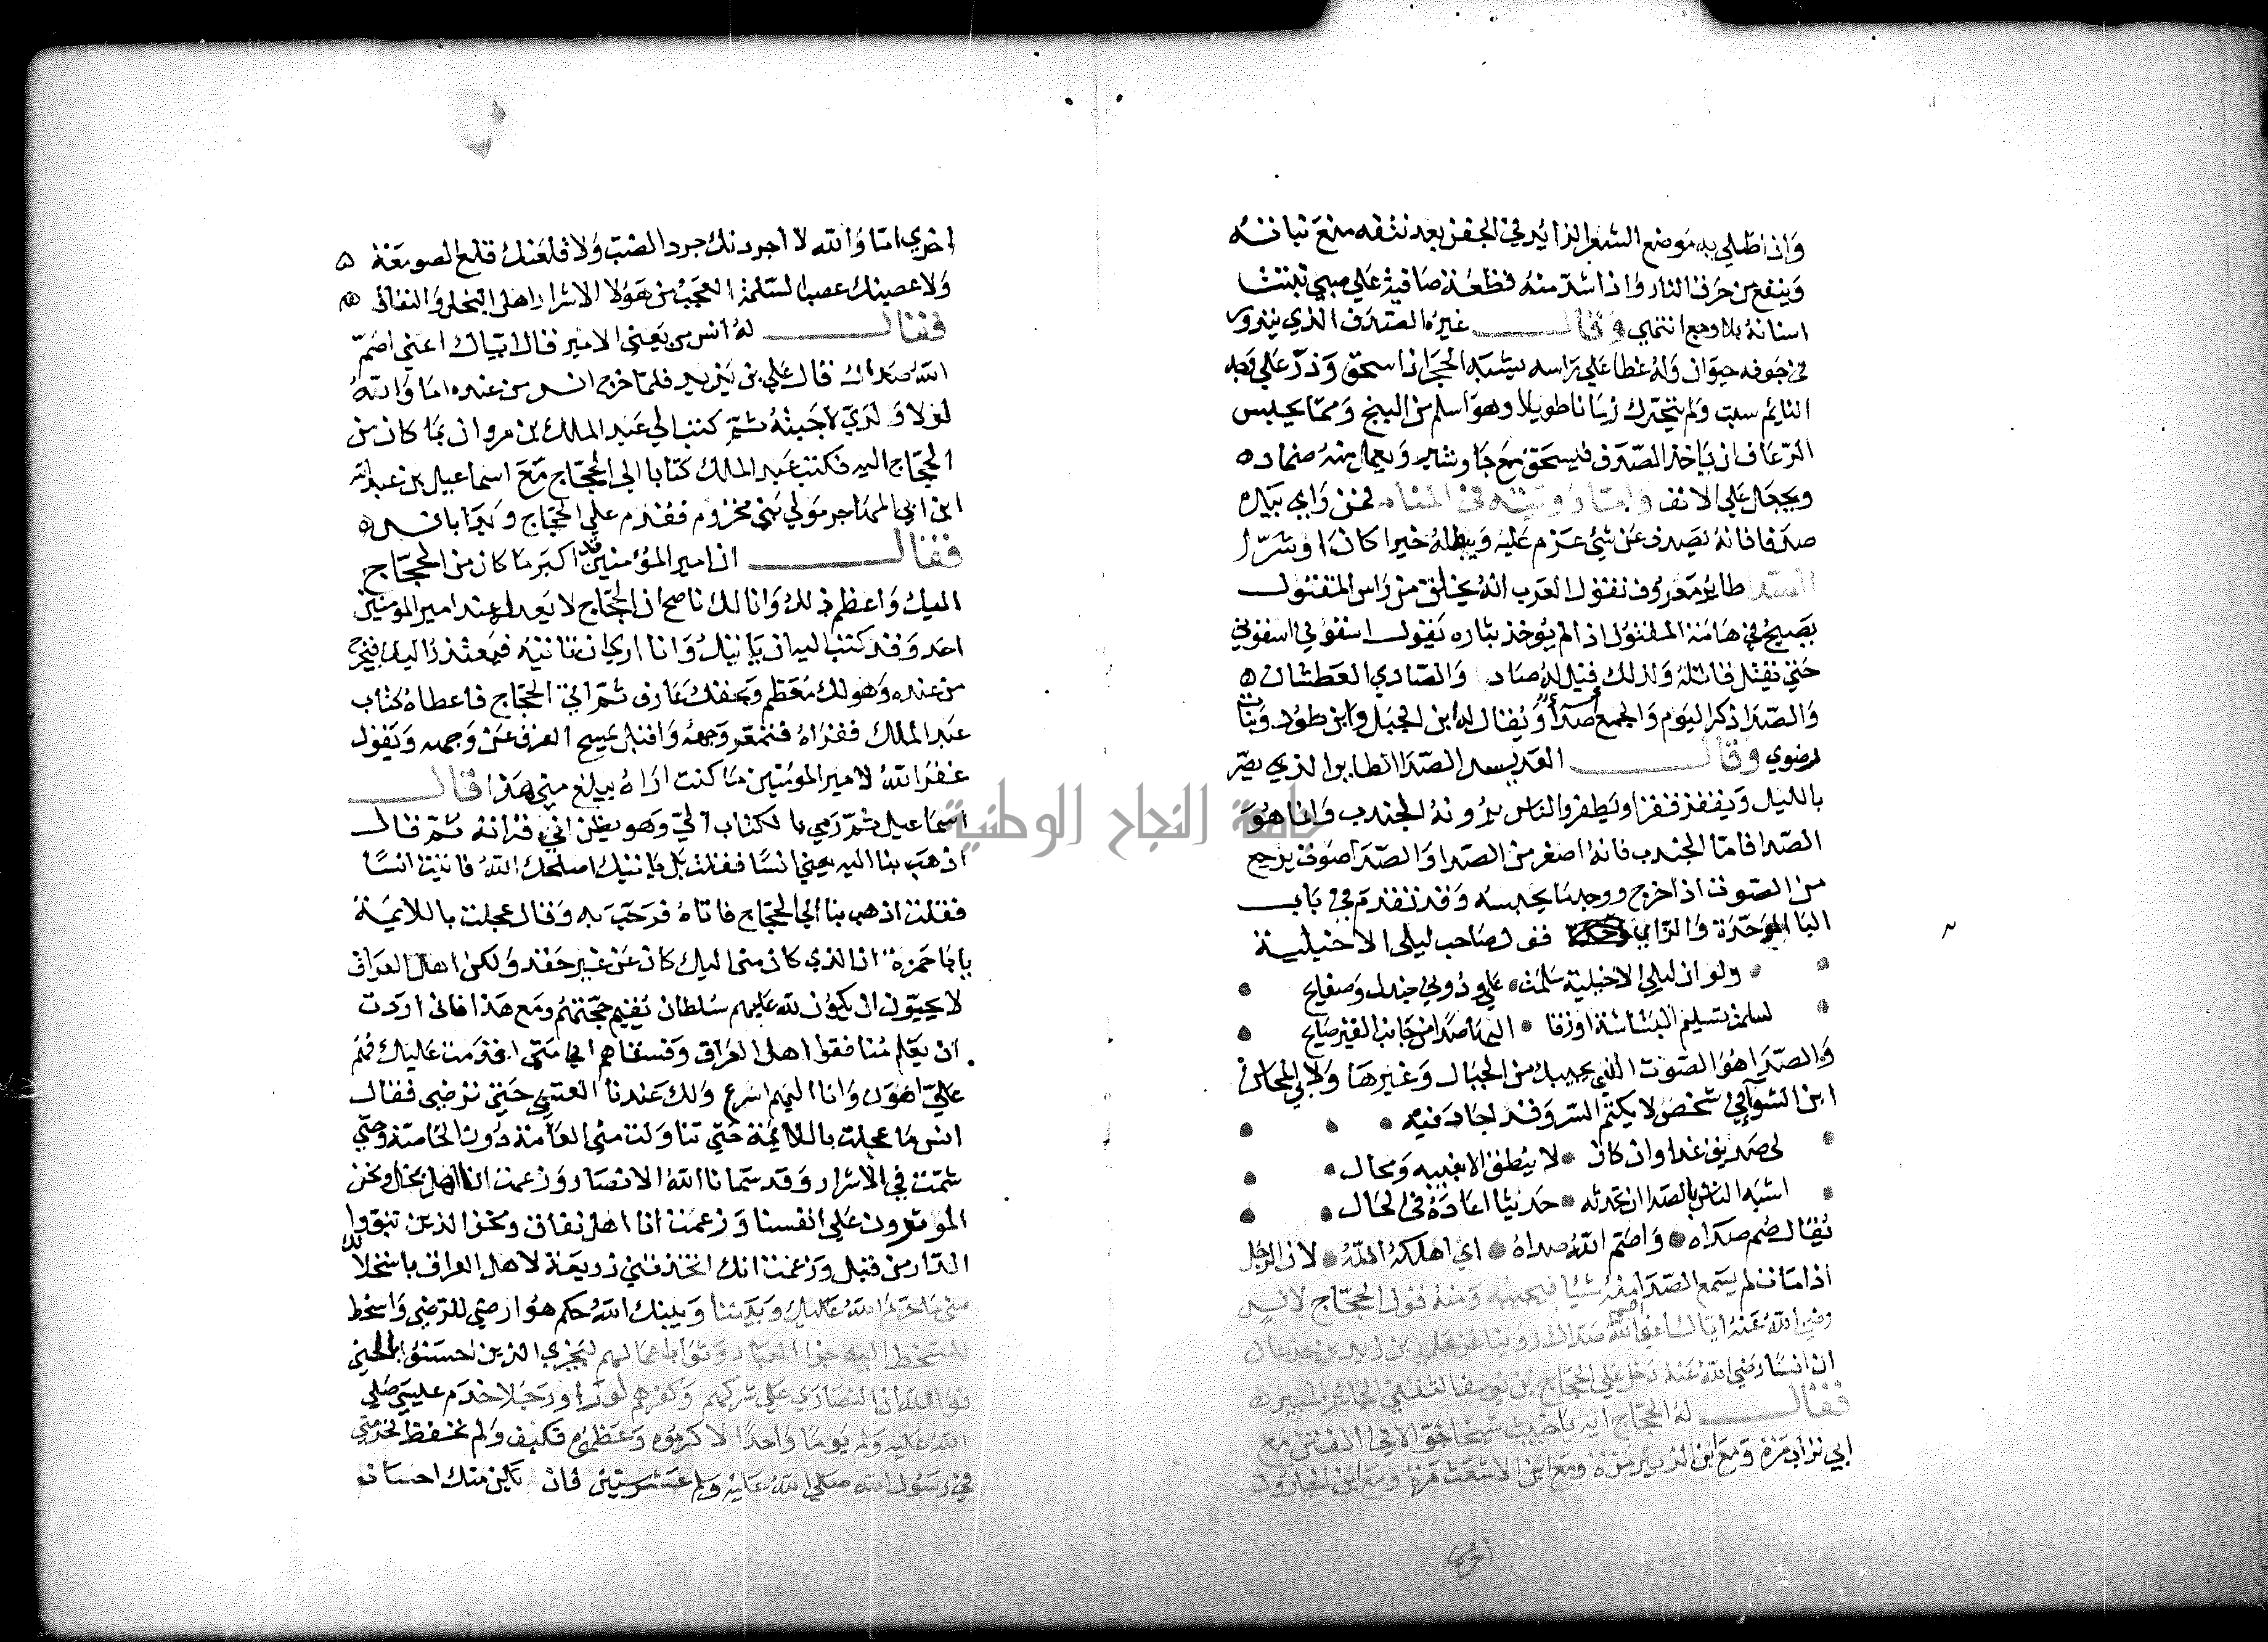 واذا طلي به موضع الشعر الزائد في الجفن بعد نتفه منع نباته
وينفع من حرق النار واذا شد منه قطعة صافية على صبي تنبت
اسنانه بلا وجع انتهي وقال غيره الصدف الذي يتدور
في جوفه حيوان وله غطا علي راسه يشبه الحجر اذا سحق وذر علي وجه
النايم سبت ولم يتحرك زمانا طويلا وهو اسلم من البنج ومما يحبس
الرعاف ان ياخذ الصدف فيسحق مع جاوشير ويعمل منه ضماده
ويجعل علي الانف واما رويته في المنام فمن راي بيده
صدفا فانه يصدف عن شئ عزم عليه ويبطله خيرا كان او شرا
الصدا طاير معروف تقول العرب انه يخلق من راس المقتول
يصيح في هامة المقتول اذا لم يوخذ بثاره يقول اسقوني اسقوني
حتي يقتل قاتله ولذلك قيل له صاد والصادي العطشان
والصدا ذكر اليوم والجمع اصدآ ويقال له ابن الجبل وابن طود وبنات
رضوي وقال العدبس الصدا الطاير الذي يصر
بالليل ويقفز قفزا ويطفر والناس يرونه الجندب وانما هو
الصدا فاما الجندب فانه اصغر من الصدا والصدا صوت يرجع
من الصوت اذا خرج ووجد ما يحبسه وقد تقدم في باب
البا الموحدة والزاي قول صاحب ليلي الاخيلية
ولو ان ليلي الاخيلية سلمت علي ودوني جندل وصفايح
لسلمت تسليم البشاشة او زقا اليها صدا من جانب القبر صايح
والصدا هو الصوت الذي يجيبك من الجبال وغيرها ولابي المحاسن
ابن الشوآ في شخص لا يكتم السر وقد اجاد فيه
لي صديق غدا وان كان لا ينطق الا بغيبه ومحال
اشبه الناس بالصدا ان تحدثه حديثا اعاده في الحال
يقال صم صداه واصم الله صداه اي اهلكه الله لان الرجل
اذا مات لم يسمع الصدا منه شيئا فيجيبه ومنه قول الحجاج لانس
رضي الله عنه اياك اعني اصم الله صداك روينا عن علي بن زيد بن جدعان
ان انسا رضي الله عنه دخل علي الحجاج بن يوسف الثقفي الجائر المبير
فقال له الحجاج ايه ياخبيث شيخا جوالا في الفتن مع
ابي تراب مرة ومع ابن الزبير مرة ومع ابن الاشعث مرة ومع ابن الجارود
اخري
اخري اما والله لا اجردنك جرد الضب ولا قلعنك قلع الصومغة
ولا عصبنك عصب السلمة العجب من هؤلا الاشرار اهل البخل والنفاق
فقال له انس من يعني الامير قال اياك اعني اصم
الله صداك قال علي بن يزيد فلما خرج انس من عنده اما والله
لولا ولدي لاجبته ثم كتب الي عبد الملك بن مروان بما كان من
الحجاج اليه فكتب عبد الملك كتابا الي الحجاج مع اسماعيل بن عبد الله
ابن ابي المهاجر مولي بني مخزوم فقدم علي الحجاج وبدا بانس
فقال ان امير المؤمنين قد اكبر ما كان من الحجاج
اليك واعظم ذلك وانا لك ناصح ان الحجاج لا يعدله عند امير المومنين
احد وقد كتب اليه ان ياتيك وانا اري ان تاتيه فيعتذر اليك فتخرج
من عنده وهو لك معظم وبحقك عارف ثم اتي الحجاج فاعطاه كتاب
عبد الملك فقراه فتمعر وجهه واقبل يمسح العرق عن وجهه ويقول
غفر الله لامير المومنين ما كنت اراه يبلغ مني هذا قال
اسماعيل ثم رمي بالكتاب الي وهو يظن اني قراته ثم قال
اذهب بنا اليه يعني انسا فقلت بل ياتيك اصلحك الله فاتيت انسا
فقلت اذهب بنا الي الحجاج فاتاه فرحب به وقال عجلت باللايمة
يابا حمزة ان الذي كان مني اليك كان عن غير حقد ولكن اهل العراق
لا يحبون ان يكون لله عليهم سلطان يقيم حجتهم ومع هذا فاني اردت
ان يعلم منافقوا اهل العراق وفسقاهم اني متي اقدمت عليك فهم
علي اهون وانا اليهم اسرع ولك عندنا العتبي حتي ترضي فقال
انس ما عجلت باللايمة حتي تناولت مني العامة دون الخاصة وحتي
شمت بي الاشرار وقد سمانا الله الانصار وزعمت انا اهل بخل ونحن
الموثرون علي انفسنا وزعمت انا اهل نفاق ونحن الذين تبوؤا
الدار من قبل وزعمت انك اتخذتني ذريعة لاهل العراق باستحلالك
مني ما حرم الله عليك وبيننا وبينك الله حكم هو ارضي للرضي واسخط
للسخط اليه جزا العباد وثواب اعمالهم ليجزي الذين احسنوا بالحسني
فوالله ان النصاري علي شركهم وكفرهم لو راو رجلا خدم عيسي صلي
الله عليه ولم يوما واحدا لاكرموه وعظموه فكيف ولم تحفظ خدمتي
في رسول الله صلي الله عليه ولم عشر سنين فان يكن منك احسان